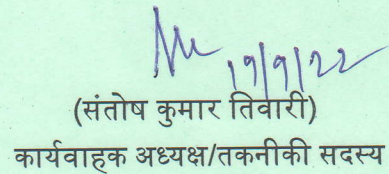 19/9/22
(संतोष कुमार तिवारी)
कार्यवाहक अध्यक्ष/तकनीकी सदस्य